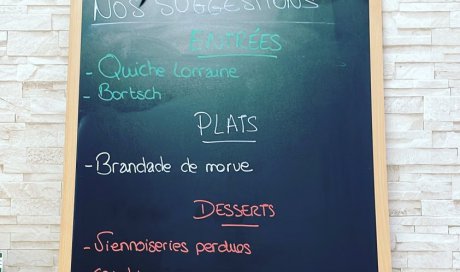 NOS SUGGESTIONS
ENTRÉES
- Quiche Lorraine
- Bortsch
PLATS
- Brandade de morue
DESSERTS
- Viennoiseries perdues